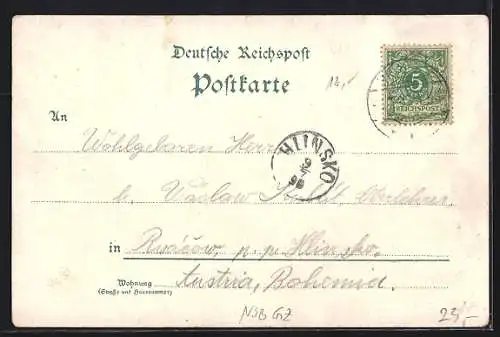 Deutsche Reichspost
Postkarte
12,-
5
REICHSPOST
An
Wohlgeboren Herr
HLINSKO
b. Václav Oberlehrer
in p. p. Hlinsko.
Wohnung
(Straße und Hausnummer)
Austria, Bohemia.
NSB GZ
23,-